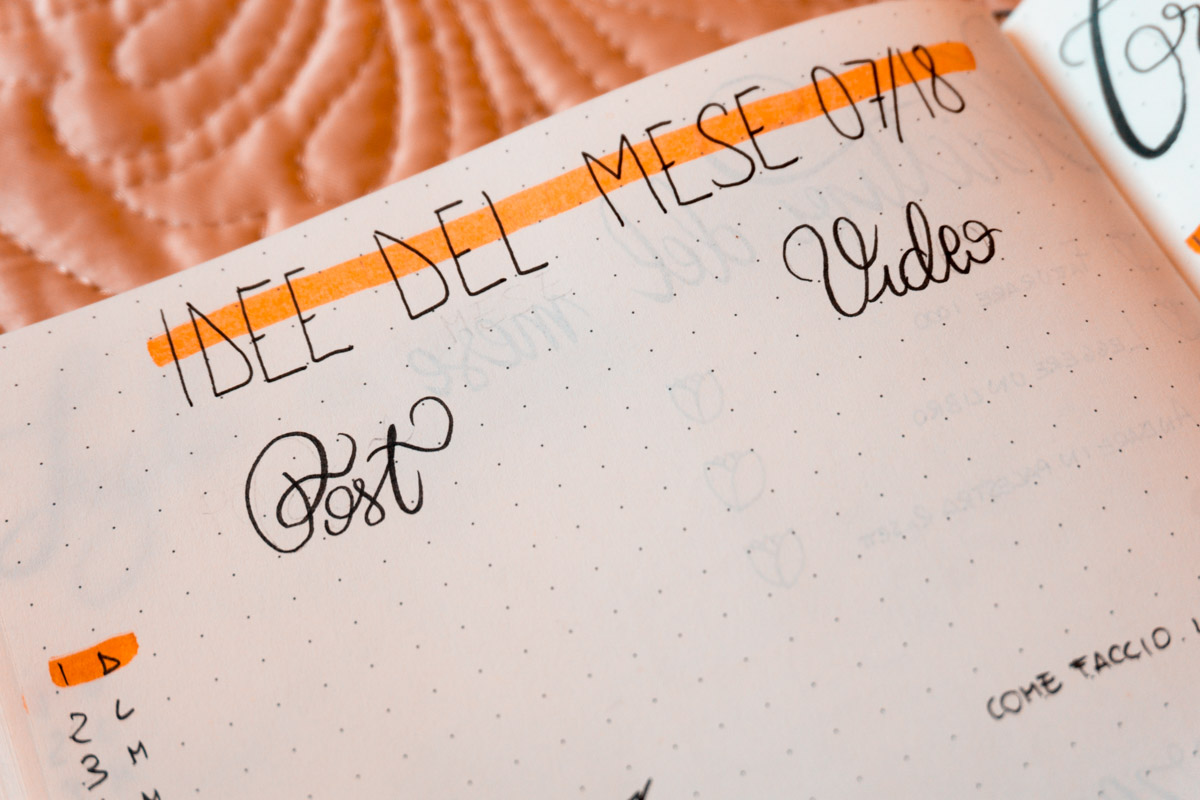 IDEE DEL MESE 07/18
Video
Post
1 D
2 L
COME FACCIO
3 M
M